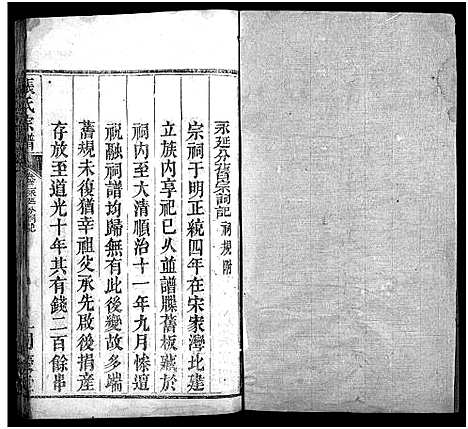 永延分舊宗祠記 祠規附
宗祠于明正統四年在宋家灣北建
立族内享祀已久並譜牒舊板藏於
祠内至大清順治十一年九月慘遭
祝融祠譜均歸無有此後變故多端
舊規未復猶幸祖父承先啟後捐產
存放至道光十年共有錢二百餘串
張氏宗譜